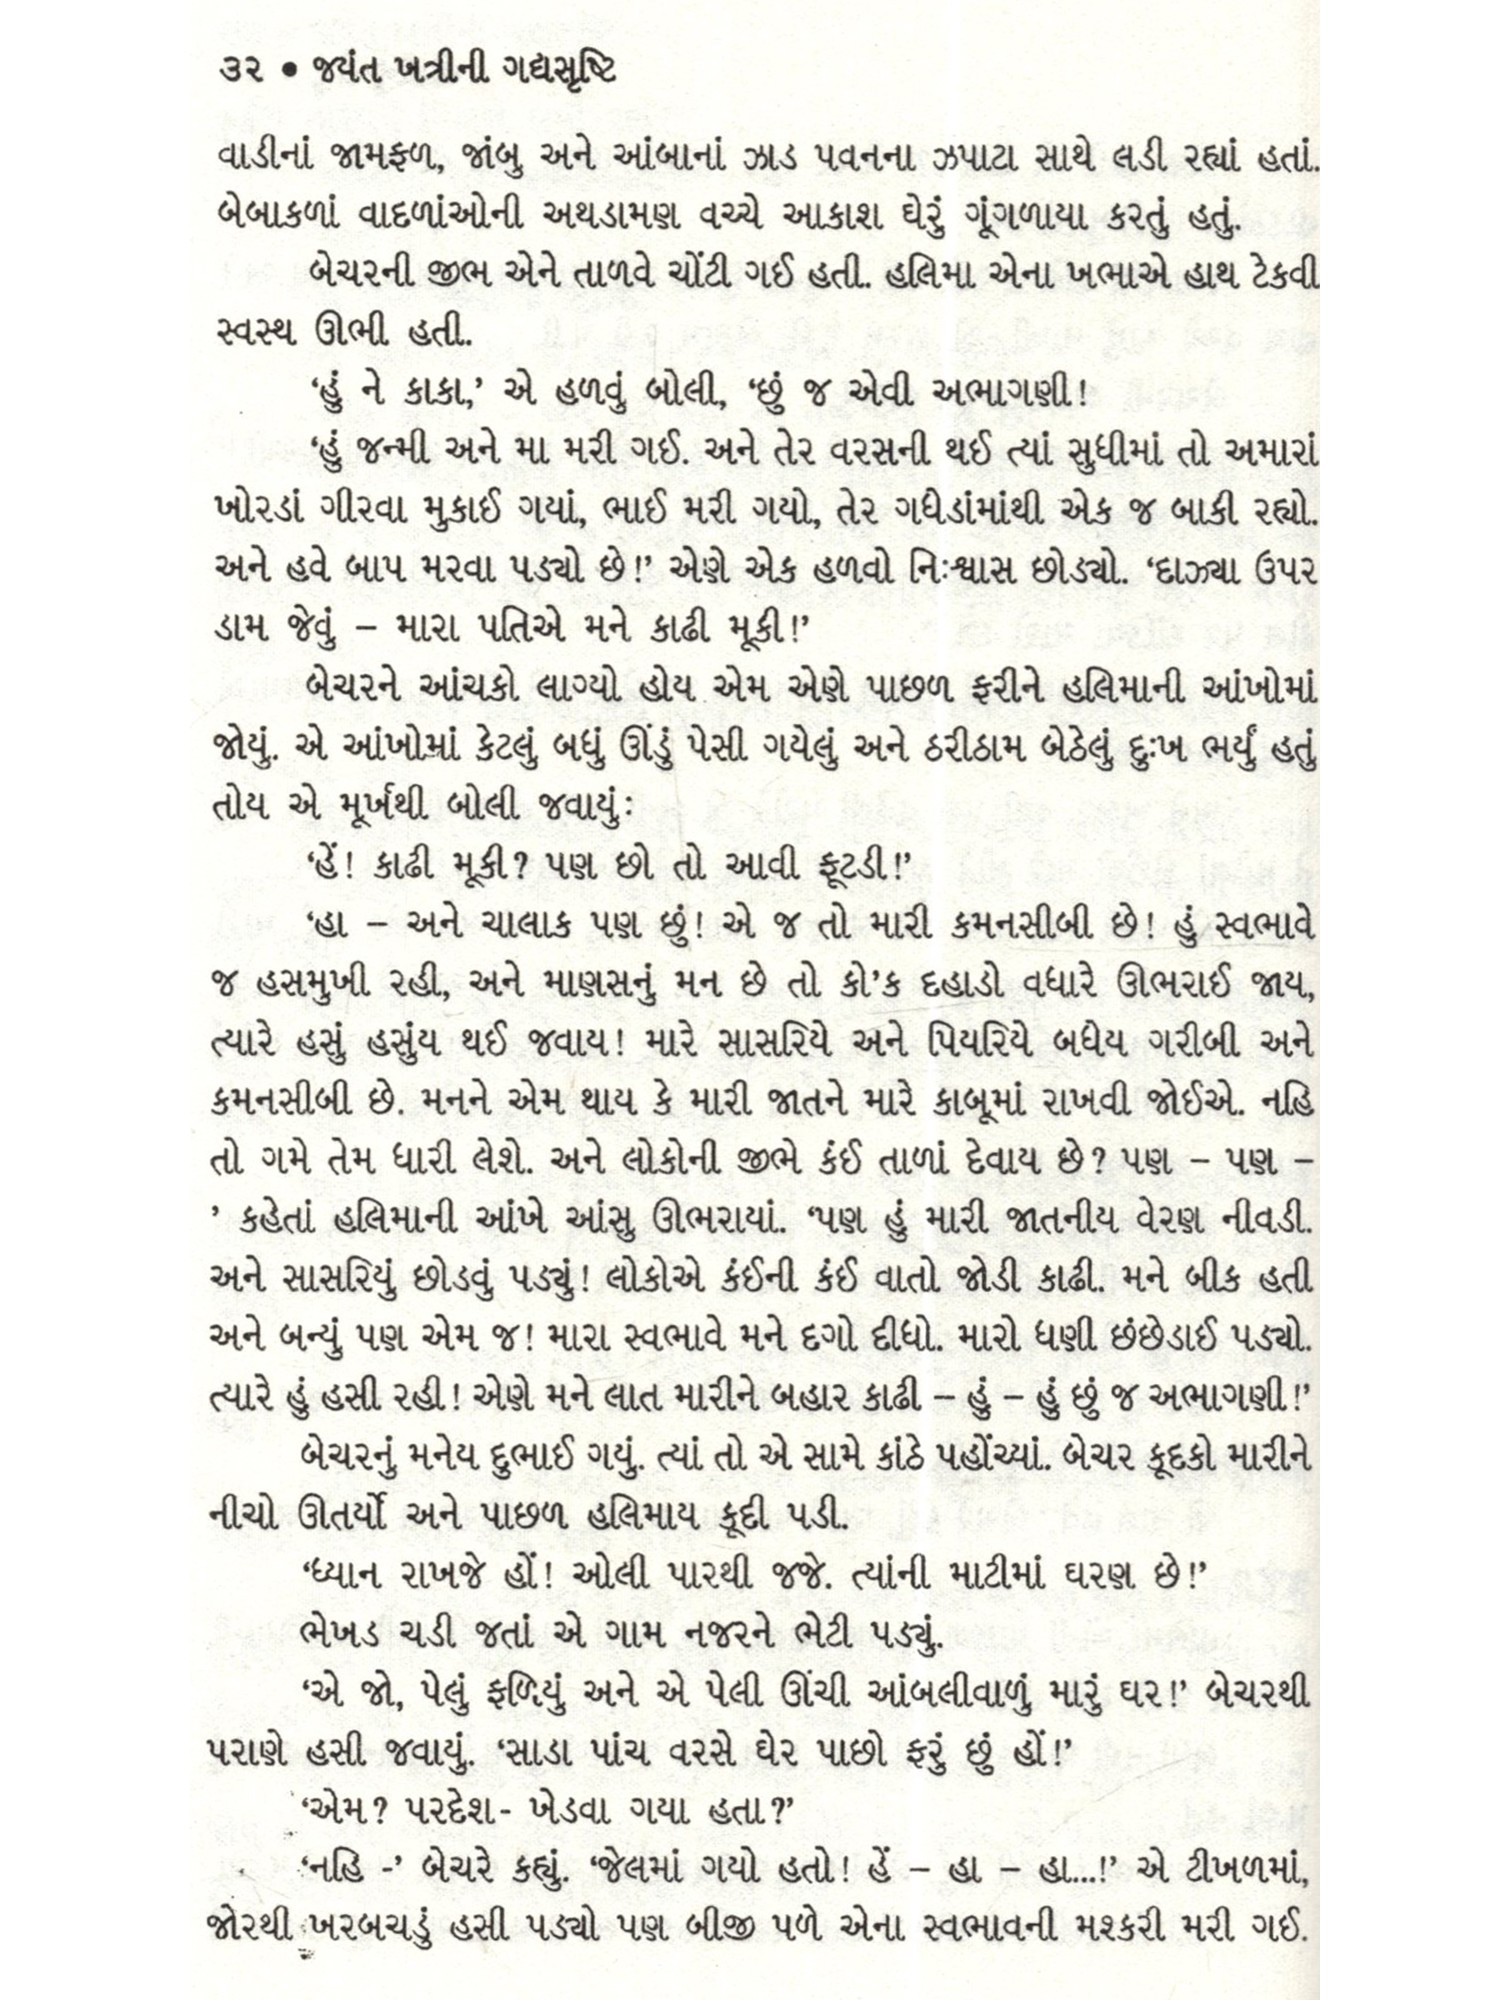 ૩૨ ● જયંત ખત્રીની ગદ્યસૃષ્ટિ
વાડીનાં જામફળ, જાંબુ અને આંબાનાં ઝાડ પવનના ઝપાટા સાથે લડી રહ્યાં હતાં.
બેબાકળાં વાદળાંઓની અથડામણ વચ્ચે આકાશ ઘેરું ગૂંગળાયા કરતું હતું.
બેચરની જીભ એને તાળવે ચોંટી ગઈ હતી. હલિમા એના ખભાએ હાથ ટેકવી
સ્વસ્થ ઊભી હતી.
‘હું ને કાકા,’ એ હળવું બોલી, ‘છું જ એવી અભાગણી!
‘હું જન્મી અને મા મરી ગઈ. અને તેર વરસની થઈ ત્યાં સુધીમાં તો અમારાં
ખોરડાં ગીરવા મુકાઈ ગયાં, ભાઈ મરી ગયો, તેર ગધેડાંમાંથી એક જ બાકી રહ્યો.
અને હવે બાપ મરવા પડ્યો છે!’ એણે એક હળવો નિઃશ્વાસ છોડ્યો. ‘દાઝ્યા ઉપર
ડામ જેવું – મારા પતિએ મને કાઢી મૂકી!’
બેચરને આંચકો લાગ્યો હોય એમ એણે પાછળ ફરીને હલિમાની આંખોમાં
જોયું. એ આંખોમાં કેટલું બધું ઊંડું પેસી ગયેલું અને ઠરીઠામ બેઠેલું દુઃખ ભર્યું હતું
તોય એ મૂર્ખથી બોલી જવાયુંઃ
‘હેં! કાઢી મૂકી? પણ છો તો આવી ફૂટડી!’
‘હા – અને ચાલાક પણ છું! એ જ તો મારી કમનસીબી છે! હું સ્વભાવે
જ હસમુખી રહી, અને માણસનું મન છે તો કો’ક દહાડો વધારે ઊભરાઈ જાય,
ત્યારે હસું હસુંય થઈ જવાય! મારે સાસરિયે અને પિયરિયે બધેય ગરીબી અને
કમનસીબી છે. મનને એમ થાય કે મારી જાતને મારે કાબૂમાં રાખવી જોઈએ. નહિ
તો ગમે તેમ ધારી લેશે. અને લોકોની જીભે કંઈ તાળાં દેવાય છે? પણ – પણ –
’ કહેતાં હલિમાની આંખે આંસુ ઊભરાયાં. ‘પણ હું મારી જાતનીય વેરણ નીવડી.
અને સાસરિયું છોડવું પડ્યું! લોકોએ કંઈની કંઈ વાતો જોડી કાઢી. મને બીક હતી
અને બન્યું પણ એમ જ! મારા સ્વભાવે મને દગો દીધો. મારો ધણી છંછેડાઈ પડ્યો.
ત્યારે હું હસી રહી! એણે મને લાત મારીને બહાર કાઢી – હું – હું છું જ અભાગણી!’
બેચરનું મનેય દુભાઈ ગયું. ત્યાં તો એ સામે કાંઠે પહોંચ્યાં. બેચર કૂદકો મારીને
નીચો ઊતર્યો અને પાછળ હલિમાય કૂદી પડી.
‘ધ્યાન રાખજે હોં! ઓલી પારથી જજે. ત્યાંની માટીમાં ઘરણ છે!’
ભેખડ ચડી જતાં એ ગામ નજરને ભેટી પડ્યું.
‘એ જો, પેલું ફળિયું અને એ પેલી ઊંચી આંબલીવાળું મારું ઘર!’ બેચરથી
પરાણે હસી જવાયું. ‘સાડા પાંચ વરસે ઘેર પાછો ફરું છું હોં!’
‘એમ? પરદેશ- ખેડવા ગયા હતા?’
‘નહિ -’ બેચરે કહ્યું. ‘જેલમાં ગયો હતો! હેં – હા – હા...!’ એ ટીખળમાં,
જોરથી ખરબચડું હસી પડ્યો પણ બીજી પળે એના સ્વભાવની મશ્કરી મરી ગઈ.